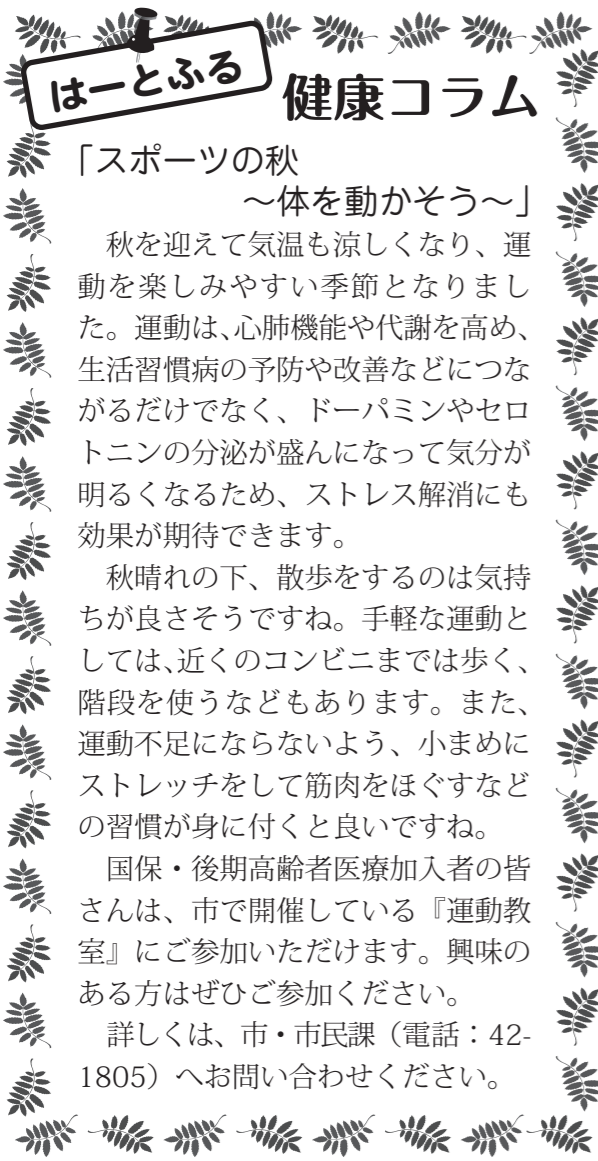 はーとふる
健康コラム
「スポーツの秋
～体を動かそう～」
秋を迎えて気温も涼しくなり、運
動を楽しみやすい季節となりまし
た。運動は、心肺機能や代謝を高め、
生活習慣病の予防や改善などにつな
がるだけでなく、ドーパミンやセロ
トニンの分泌が盛んになって気分が
明るくなるため、ストレス解消にも
効果が期待できます。
秋晴れの下、散歩をするのは気持
ちが良さそうですね。手軽な運動と
しては、近くのコンビニまでは歩く、
階段を使うなどもあります。また、
運動不足にならないよう、小まめに
ストレッチをして筋肉をほぐすなど
の習慣が身に付くと良いですね。
国保・後期高齢者医療加入者の皆
さんは、市で開催している『運動教
室』にご参加いただけます。興味の
ある方はぜひご参加ください。
詳しくは、市・市民課（電話：42-
1805）へお問い合わせください。